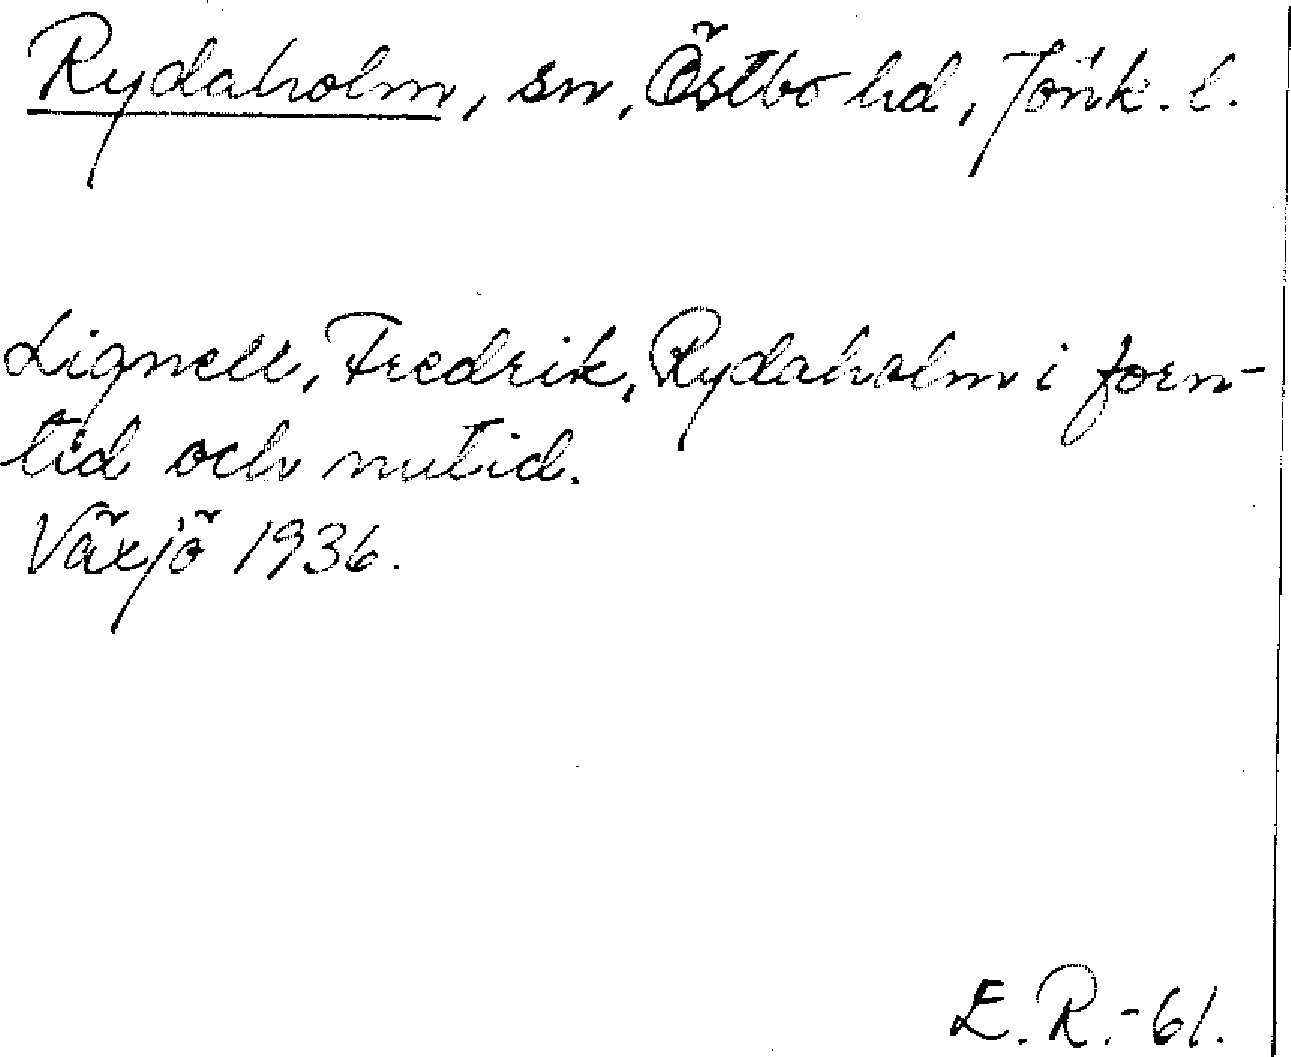 Rydaholm, sn, Östbo hd, Jönk. l.
Lignell, Fredrik, Rydaholm i forn-
tid och nutid.
Växjö 1936.
E. R. - 61.